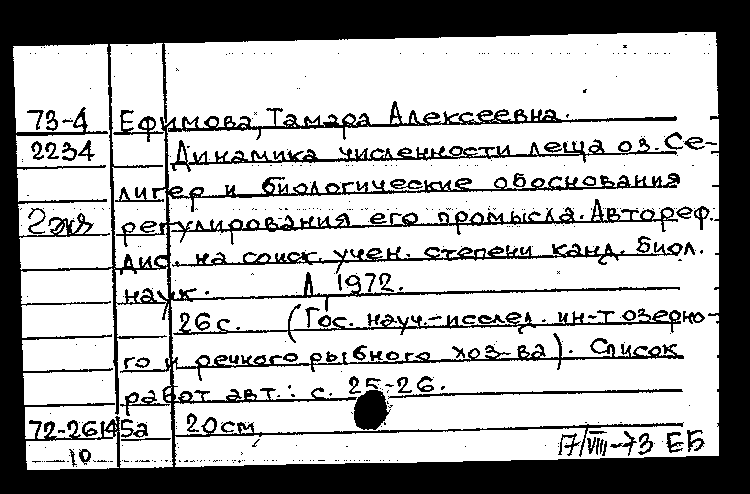 73-4 Ефимова, Тамара Алексеевна.
2234 Динамика численности леща оз. Се-
лигер и биологические обоснования
2экз регулирования его промысла. Автореф.
дис. на соиск. учен. степени канд. биол.
наук. Л, 1972.
26 с. (Гос. науч.-исслед. ин-т озерно-
го и речного рыбного хоз-ва). Список
работ авт.: с. 25-26.
72-26145а 20см
10 17/VIII-73 ЕБ